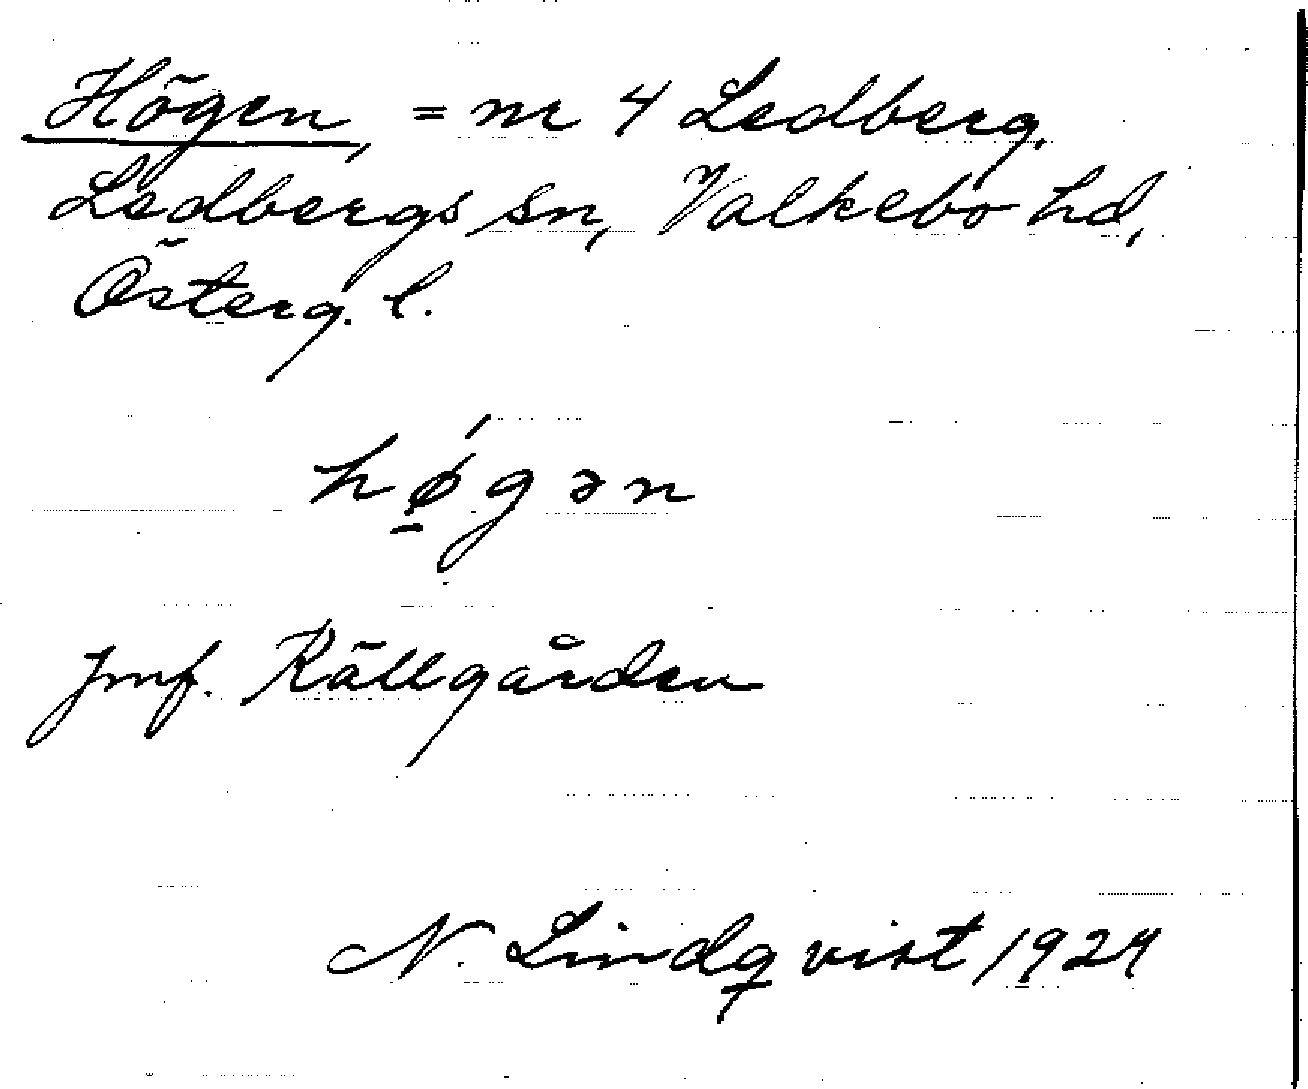 Högen, = nr 4 Ledberg.
Ledbergs sn, Valkebo hd,
Österg. l.
hǿ̱gən
Jmf. Källgården
N. Lindqvist 1924